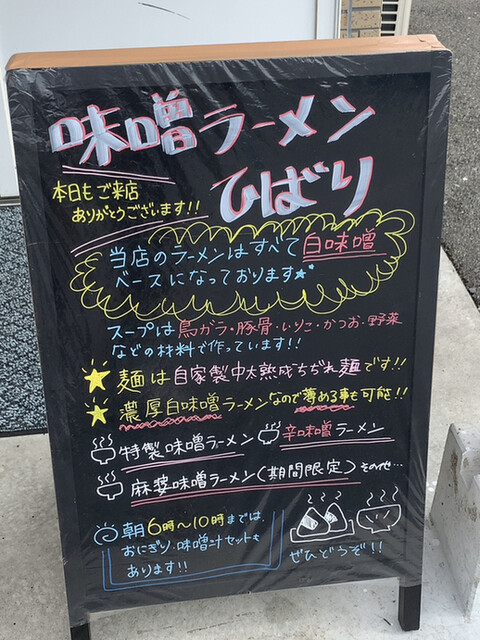 味噌ラーメン
ひばり
本日もご来店
ありがとうございます!!
当店のラーメンはすべて白味噌
ベースになっております★
スープは鳥ガラ・豚骨・いりこ・かつお・野菜
などの材料で作っています!!
麺は自家製中太熟成ちぢれ麺です!!
濃厚白味噌ラーメンなので薄める事も可能!!
特製味噌ラーメン 辛味噌ラーメン
麻婆味噌ラーメン(期間限定) その他…
朝6時〜10時までは、
おにぎり、味噌汁セットも
あります!!
ぜひどうぞ!!